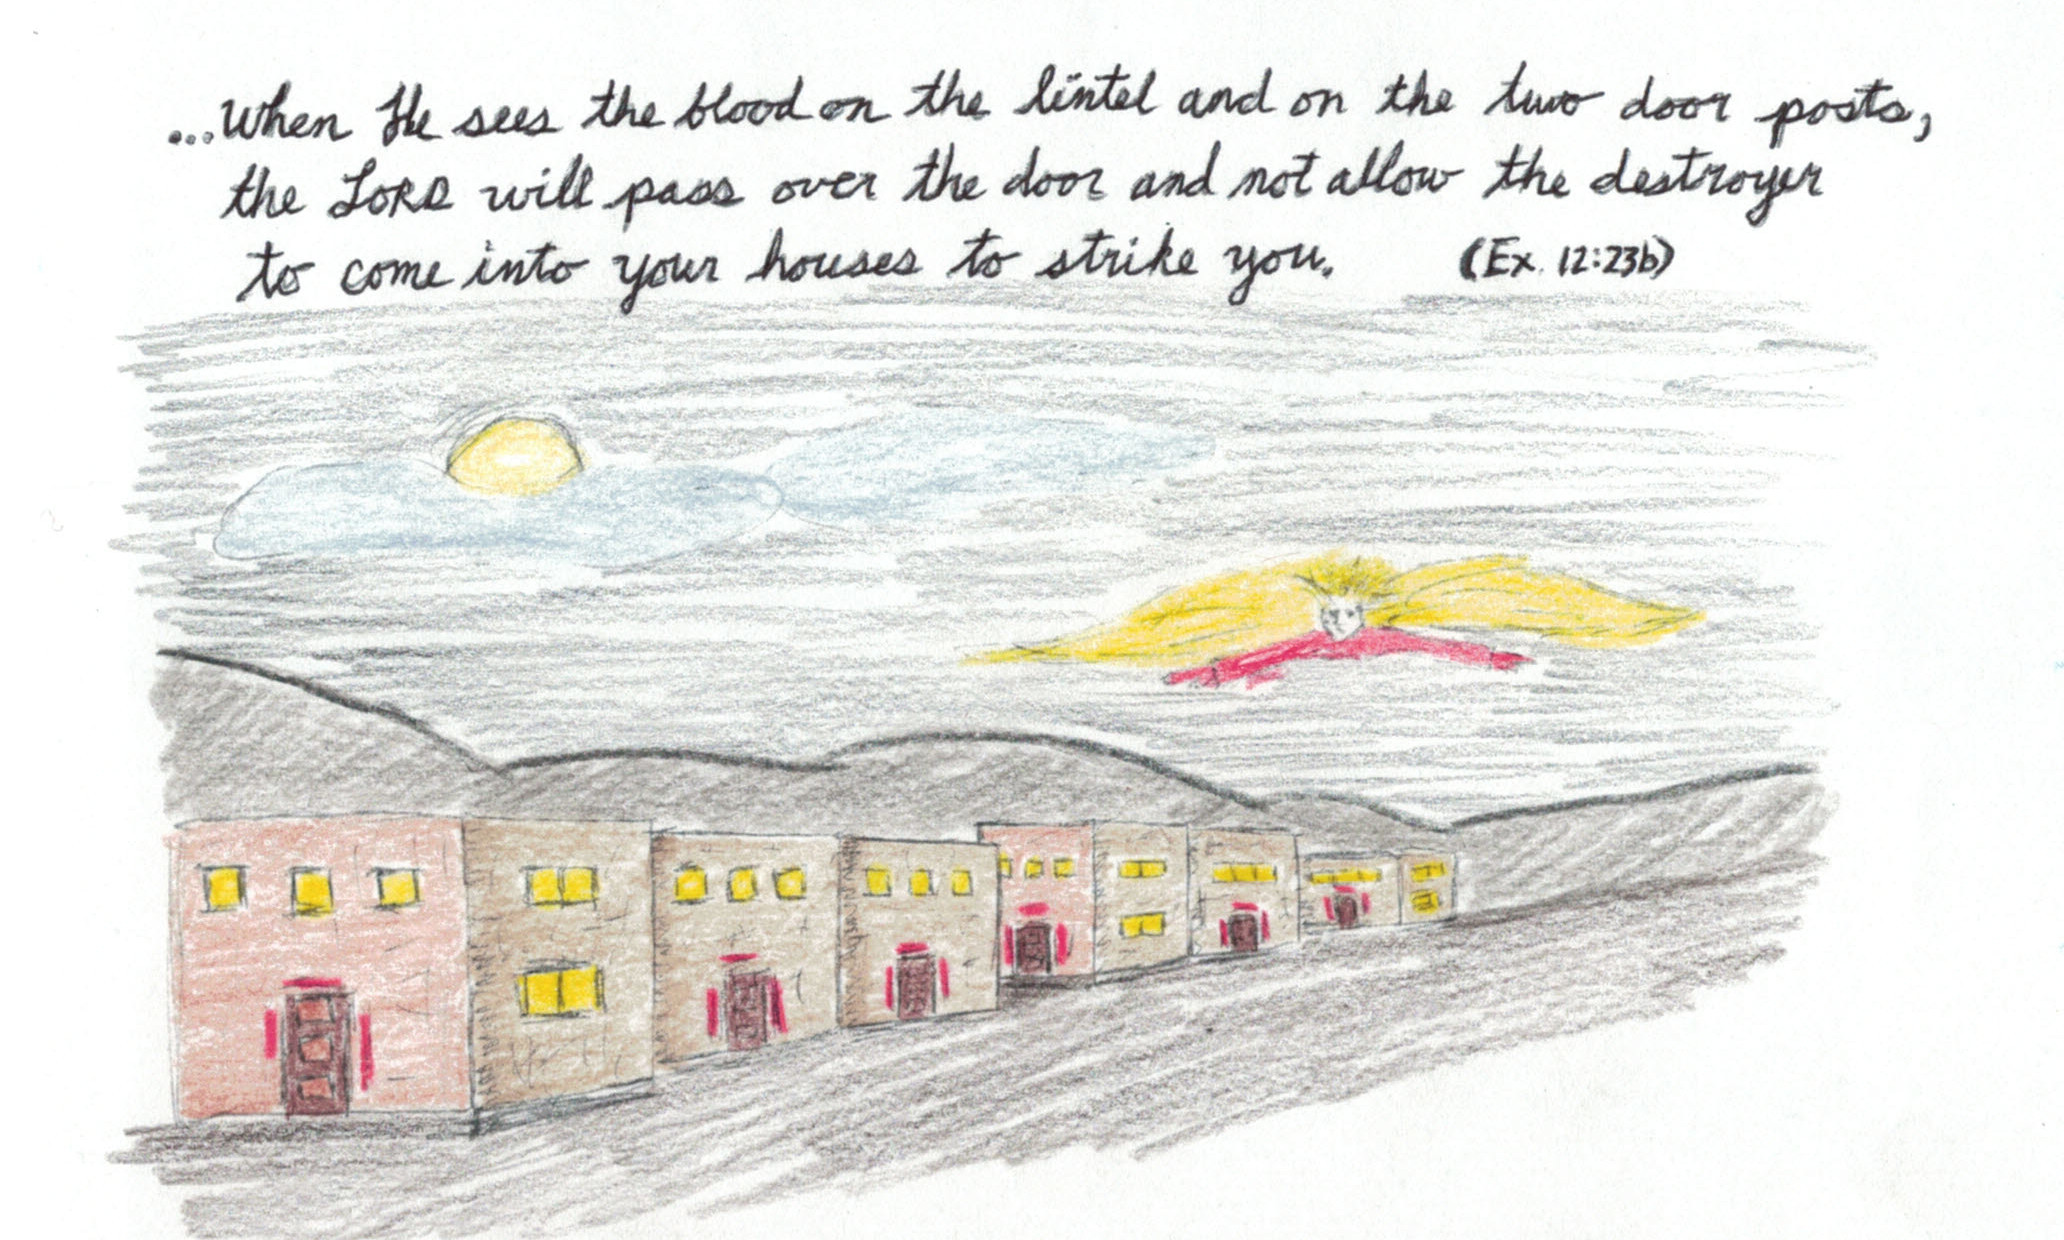 ...When He sees the blood on the lintel and on the two door posts,
the LORD will pass over the door and not allow the destroyer
to come into your houses to strike you. (Ex. 12:23b)